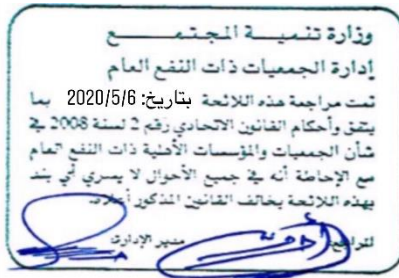 وزارة تنميـــة المجتمـــــع
إدارة الجمعيات ذات النفع العام
تمت مراجعة هذه اللائحة بتاريخ: 2020/5/6 بما
يتفق وأحكام القانون الاتحادي رقم 2 لسنة 2008 في
شأن الجمعيات والمؤسسات الأهلية ذات النفع العام
مع الإحاطة أنه في جميع الأحوال لا يسري أي بند
بهذه اللائحة يخالف القانون المذكور أعلاه.
المراجع مدير الإدارة